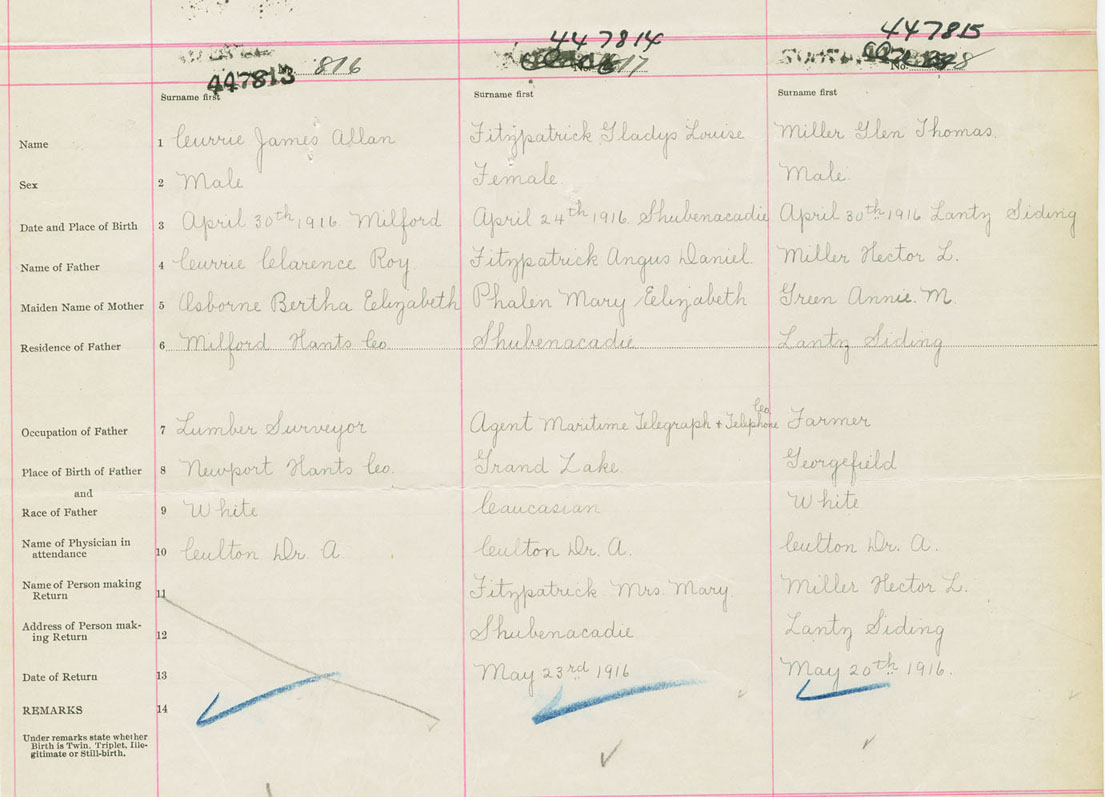 447814
447815
816
No. 817
No.
447813
Surname first
Surname first
Surname first
Name 1 Currie James Allan Fitzpatrick Gladys Louise Miller Glen Thomas.
Sex 2 Male Female. Male.
Date and Place of Birth 3 April 30th 1916 Milford April 24th 1916 Shubenacadie April 30th 1916 Lantz Siding
Name of Father 4 Currie Clarence Roy. Fitzpatrick Angus Daniel. Miller Hector L.
Maiden Name of Mother 5 Osborne Bertha Elizabeth Phalen Mary Elizabeth Green Annie. M.
Residence of Father 6 Milford Hants Co. Shubenacadie Lantz Siding
Occupation of Father 7 Lumber Surveyor Agent Maritime Telegraph + Telephone Co. Farmer
Place of Birth of Father 8 Newport Hants Co. Grand Lake. Georgefield
and
Race of Father 9 White Caucasian White
Name of Physician in
attendance 10 Culton Dr. A. Culton Dr. A. Culton Dr. A.
Name of Person making
Return 11 Fitzpatrick Mrs. Mary. Miller Hector L.
Address of Person mak-
ing Return 12 Shubenacadie Lantz Siding
Date of Return 13 May 23rd 1916 May 20th 1916.
REMARKS 14
Under remarks state whether
Birth is Twin, Triplet, Ille-
gitimate or Still-birth.